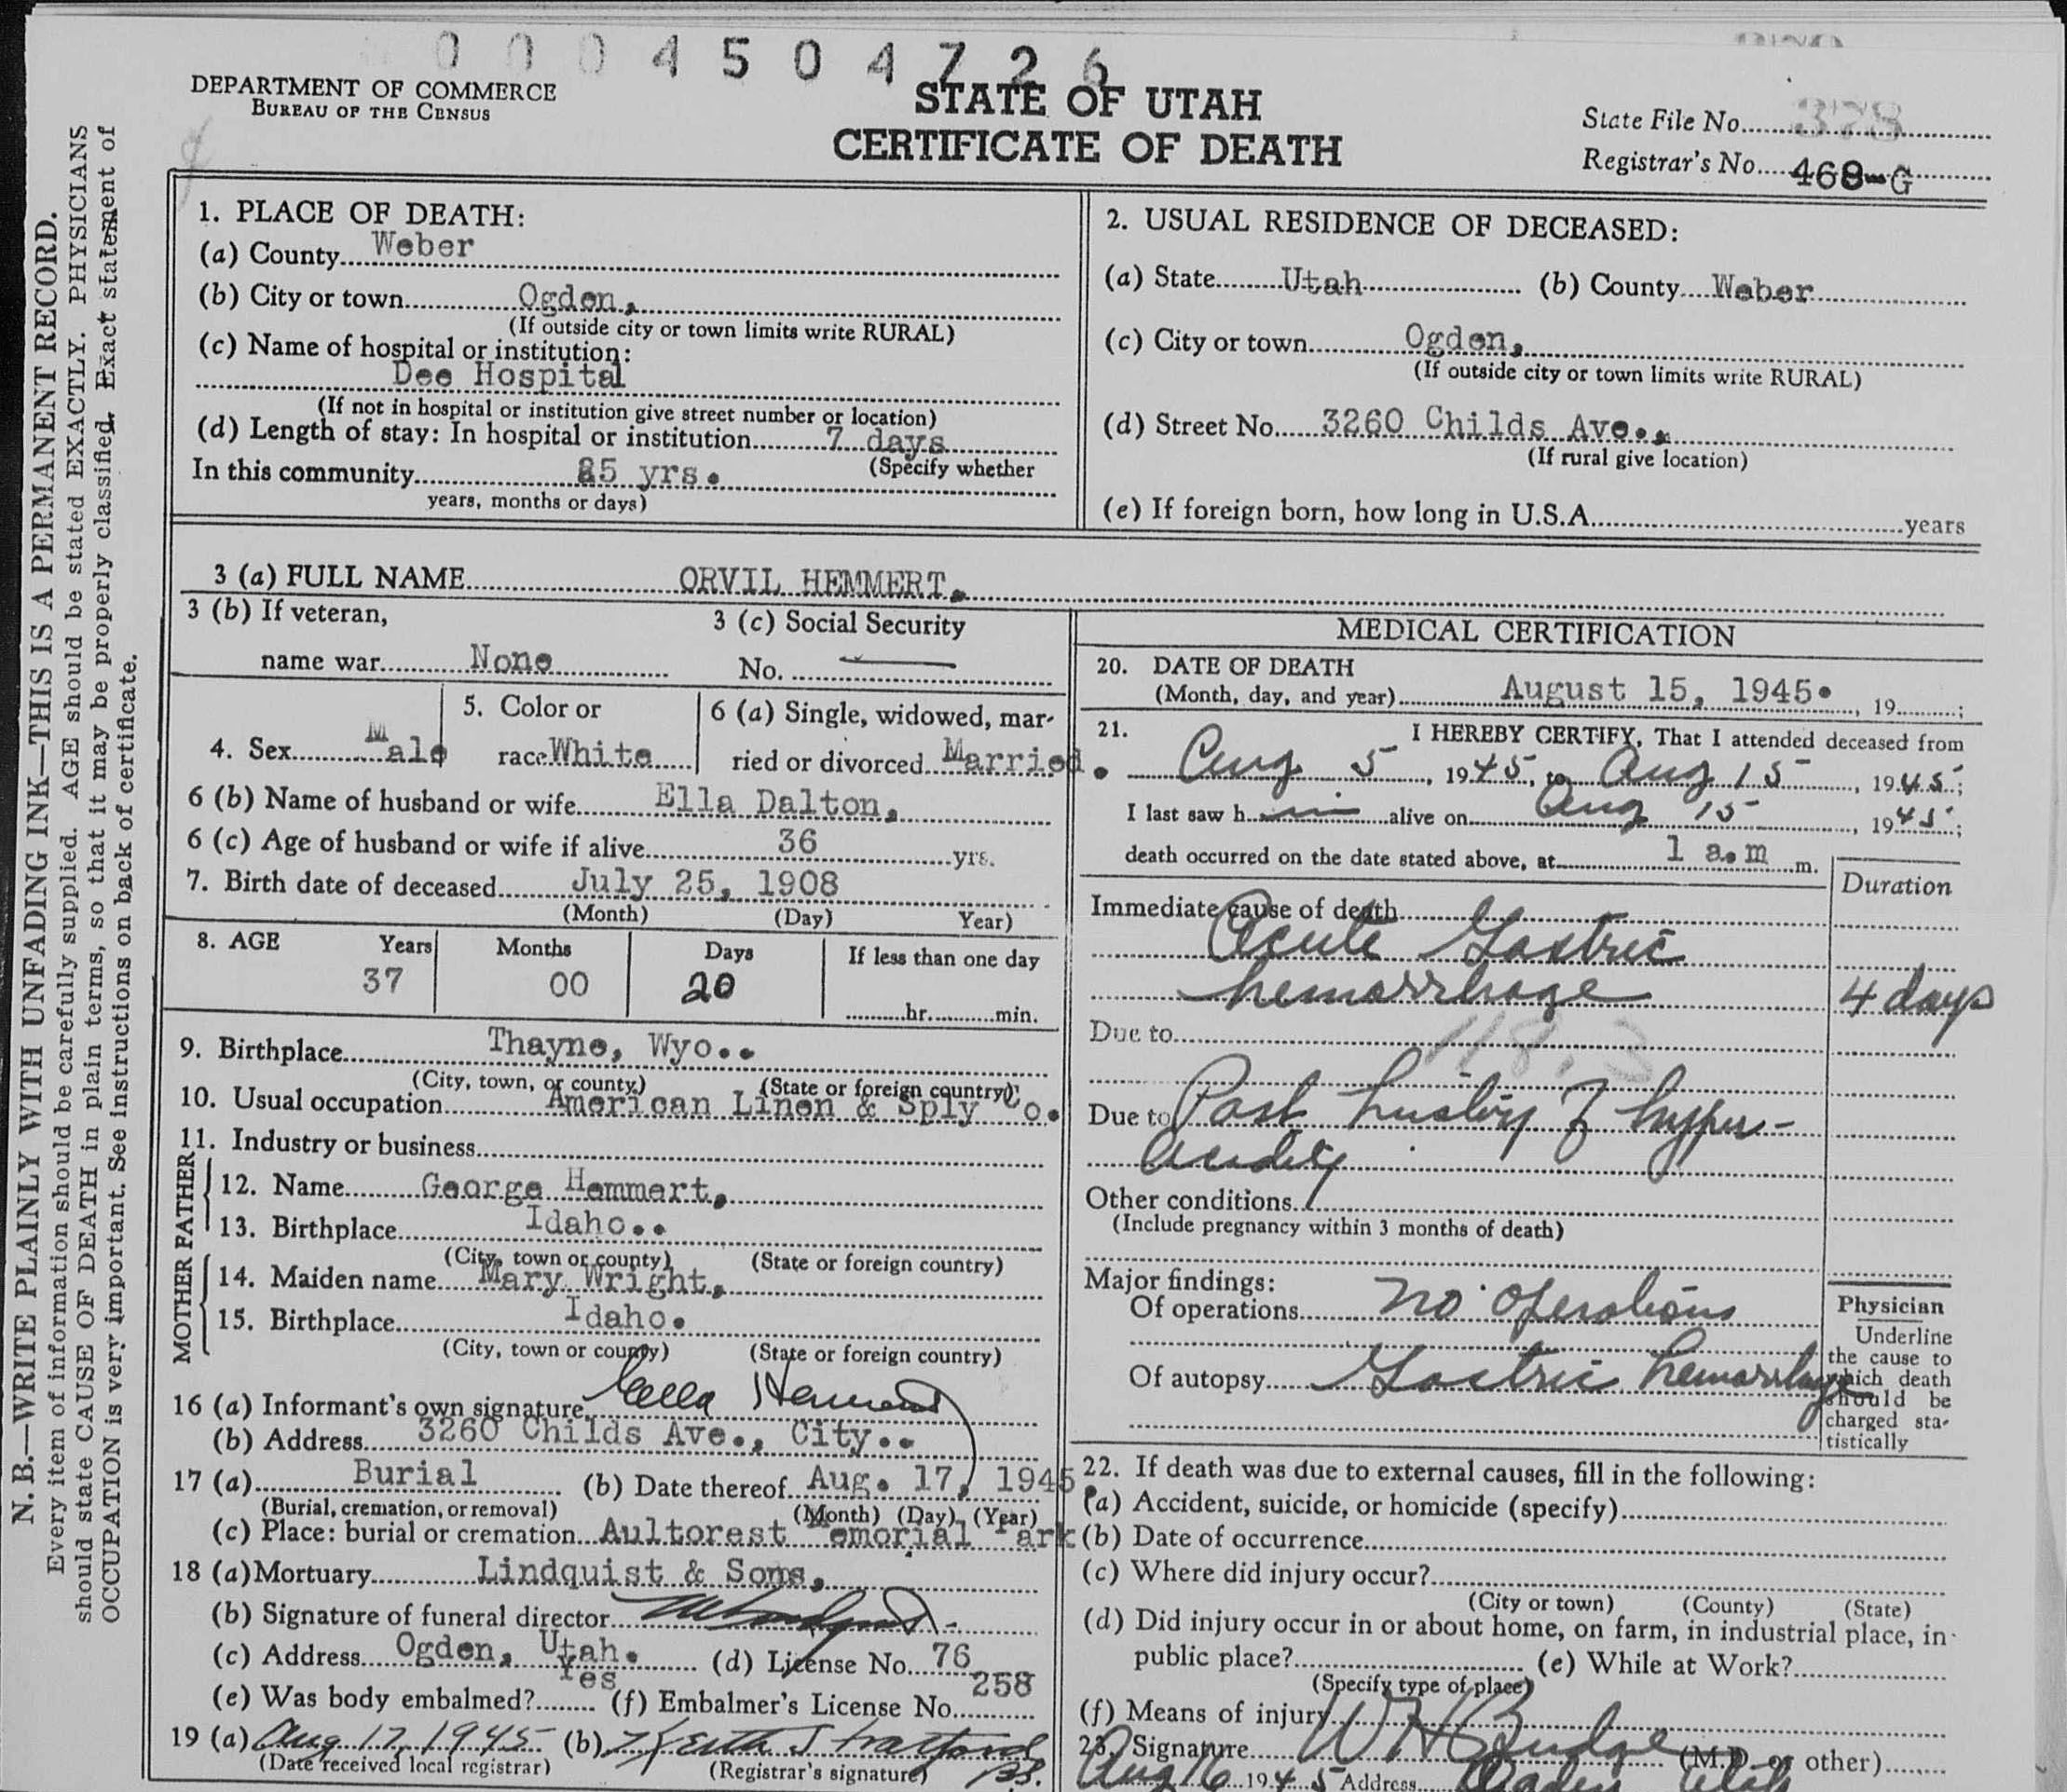 0004504726
DEPARTMENT OF COMMERCE
BUREAU OF THE CENSUS
STATE OF UTAH
CERTIFICATE OF DEATH
State File No. 378
Registrar's No. 468-G
N. B.—WRITE PLAINLY WITH UNFADING INK—THIS IS A PERMANENT RECORD.
Every item of information should be carefully supplied. AGE should be stated EXACTLY. PHYSICIANS
should state CAUSE OF DEATH in plain terms, so that it may be properly classified. Exact statement of
OCCUPATION is very important. See instructions on back of certificate.
1. PLACE OF DEATH:
(a) County Weber
(b) City or town Ogden,
(If outside city or town limits write RURAL)
(c) Name of hospital or institution:
Dee Hospital
(If not in hospital or institution give street number or location)
(d) Length of stay: In hospital or institution 7 days
(Specify whether
In this community yrs.
years, months or days)
2. USUAL RESIDENCE OF DECEASED:
(a) State Utah (b) County Weber
(c) City or town Ogden,
(If outside city or town limits write RURAL)
(d) Street No. 3260 Childs Ave.,
(If rural give location)
(e) If foreign born, how long in U.S.A. years
3 (a) FULL NAME ORVIL HEMMERT.
3 (b) If veteran,
name war None
3 (c) Social Security
No. —
4. Sex Male
5. Color or
race White
6 (a) Single, widowed, mar-
ried or divorced Married.
6 (b) Name of husband or wife Ella Dalton,
6 (c) Age of husband or wife if alive 36 yrs.
7. Birth date of deceased July 25, 1908
(Month) (Day) Year)
8. AGE Years Months Days If less than one day
37 00 20
hr. min.
9. Birthplace Thayne, Wyo..
(City, town, or county) (State or foreign country)
10. Usual occupation American Linen & Sply Co.
11. Industry or business
FATHER
12. Name George Hemmert,
13. Birthplace Idaho..
(City, town or county) (State or foreign country)
MOTHER
14. Maiden name Mary Wright,
15. Birthplace Idaho.
(City, town or county) (State or foreign country)
16 (a) Informant's own signature Ella Hemmert
(b) Address 3260 Childs Ave., City..
17 (a) Burial (b) Date thereof Aug. 17, 1945
(Burial, cremation, or removal) (Month) (Day) (Year)
(c) Place: burial or cremation Aultorest Memorial Park
18 (a) Mortuary Lindquist & Sons,
(b) Signature of funeral director
(c) Address Ogden, Utah. (d) License No. 76
(e) Was body embalmed? Yes (f) Embalmer's License No. 258
19 (a) Aug 17, 1945 (b) Keith Stratford
(Date received local registrar) (Registrar's signature)
MEDICAL CERTIFICATION
20. DATE OF DEATH
(Month, day, and year) August 15, 1945. , 19 ;
21. I HEREBY CERTIFY, That I attended deceased from
Aug 5, 1945, to Aug 15, 1945;
I last saw him alive on Aug 15, 1945;
death occurred on the date stated above, at 1 a.m m.
Duration
Immediate cause of death
Acute Gastric
hemorrhage 4 days
Due to
118.3
Due to Past history of hyper-
acidity
Other conditions
(Include pregnancy within 3 months of death)
Major findings:
Of operations no operations
Of autopsy Gastric hemorrhage
Physician
Underline
the cause to
which death
should be
charged sta-
tistically
22. If death was due to external causes, fill in the following:
(a) Accident, suicide, or homicide (specify)
(b) Date of occurrence
(c) Where did injury occur?
(City or town) (County) (State)
(d) Did injury occur in or about home, on farm, in industrial place, in
public place? (e) While at Work?
(Specify type of place)
(f) Means of injury
23. Signature W H Budge (M.D. or other)
Aug 16 1945 Address Ogden Utah